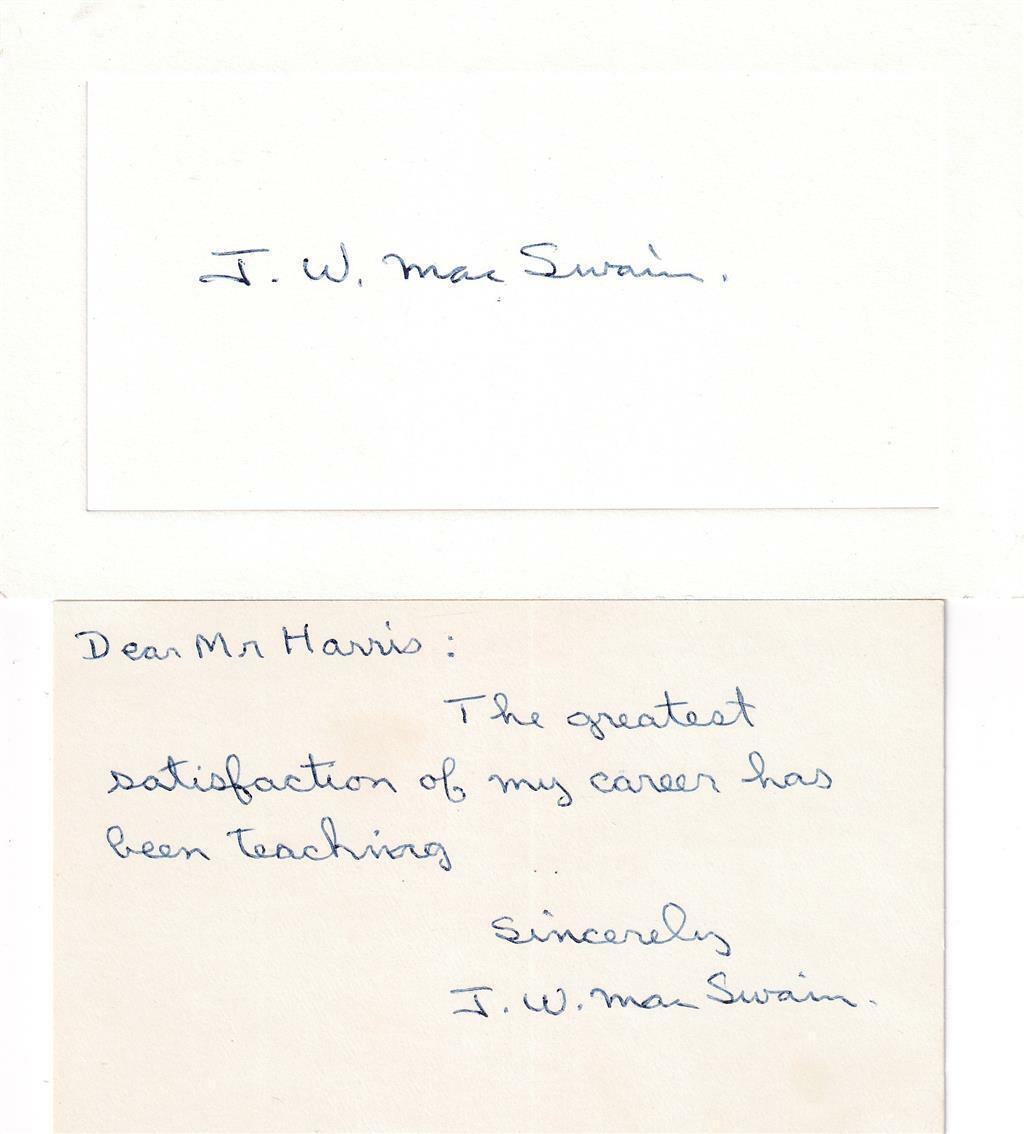 J. W. Mac Swain.
Dear Mr Harris :
The greatest
satisfaction of my career has
been teaching
Sincerely
J. W. Mac Swain.